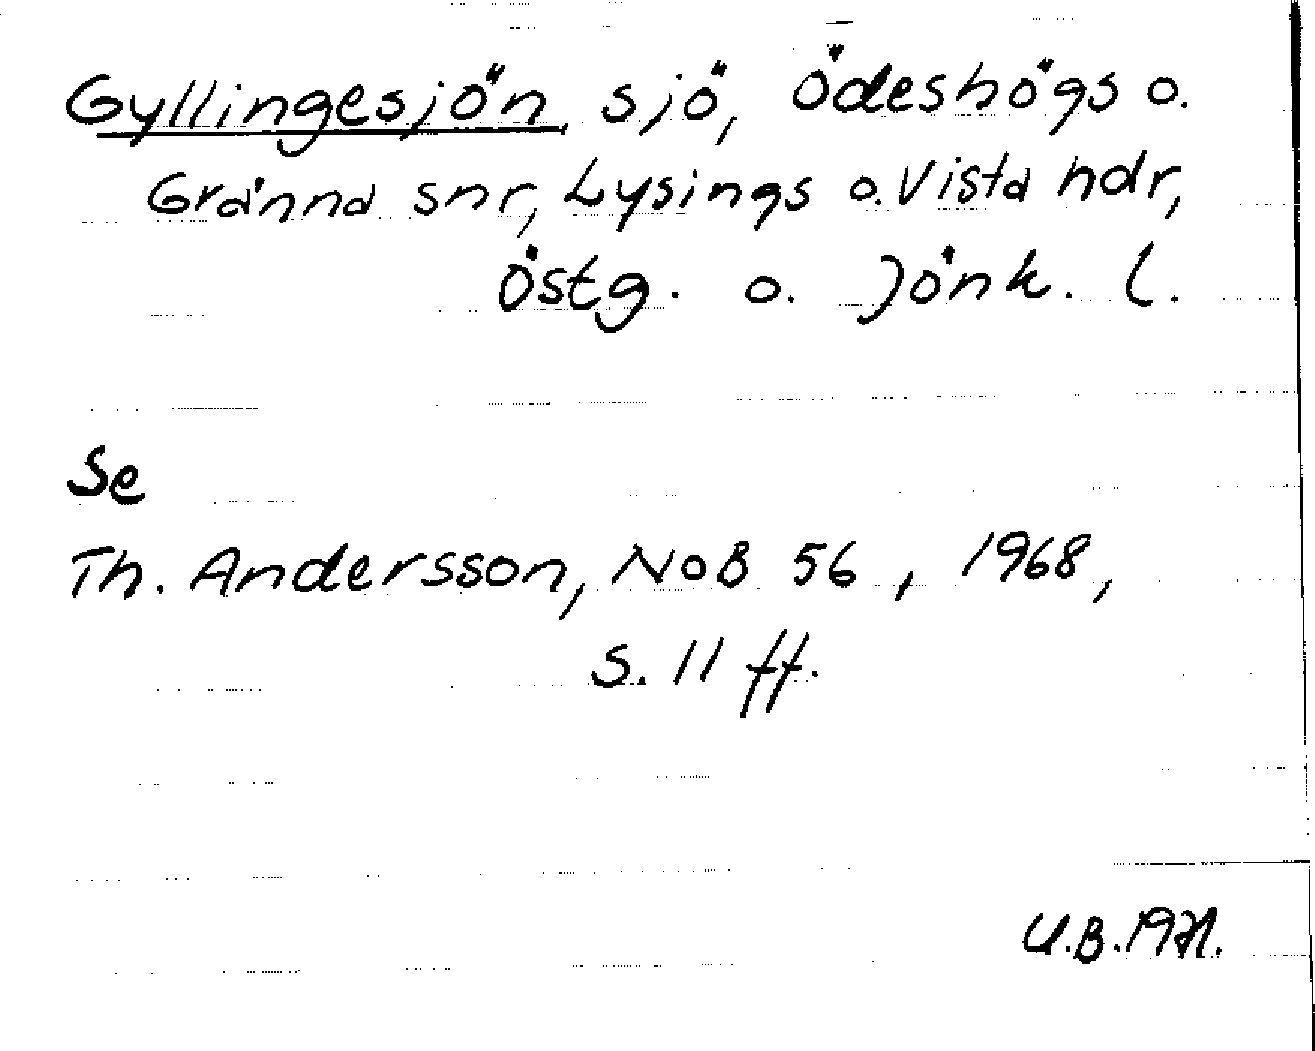 Gyllingesjön, sjö, Ödeshögs o.
Gränna snr, Lysings o. Vista hdr,
Östg. o. Jönk. l.
Se
Th. Andersson, NoB 56, 1968,
s. 11 ff.
U.B. 1971.